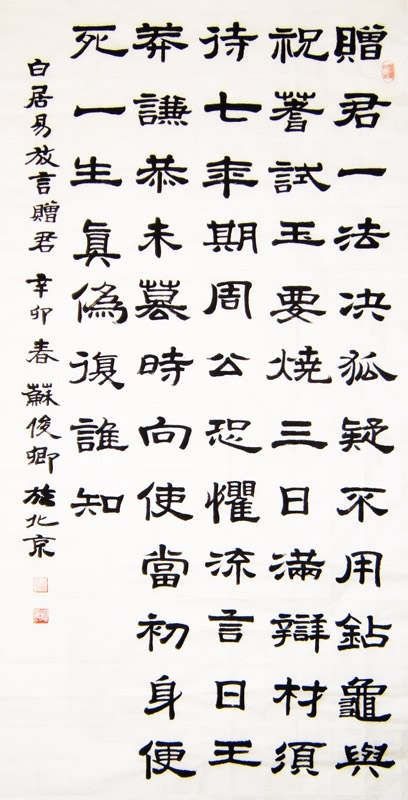 贈君一法决狐疑不用鉆龜與
祝蓍試玉要燒三日滿辯材須
待七年期周公恐懼流言日王
莽謙恭未篡時向使當初身便
死一生眞偽復誰知
白居易放言贈君 辛卯春 蘇俊卿於北京